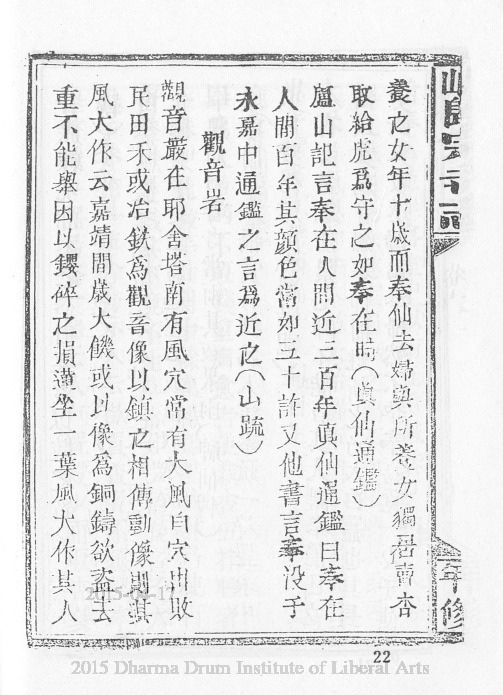 養之女年十歲而奉仙去婦與所養女獨居賣杏
取給虎爲守之如奉在時(眞仙通鑑)
廬山記言奉在人間近三百年眞仙通鑑曰奉在
人間百年其顏色常如三十許又他書言奉没于
永嘉中通鑑之言爲近之(山疏)
觀音岩
觀音巖在耶舍塔南有風穴常有大風自穴出敗
民田禾或冶鉄爲觀音像以鎮之相傳動像則其
風大作云嘉靖間歲大饑或以像爲銅鑄欲盜去
重不能舉因以碎之損蓮坐一葉風大作其人
年修
22
2015 Dharma Drum Institute of Liberal Arts